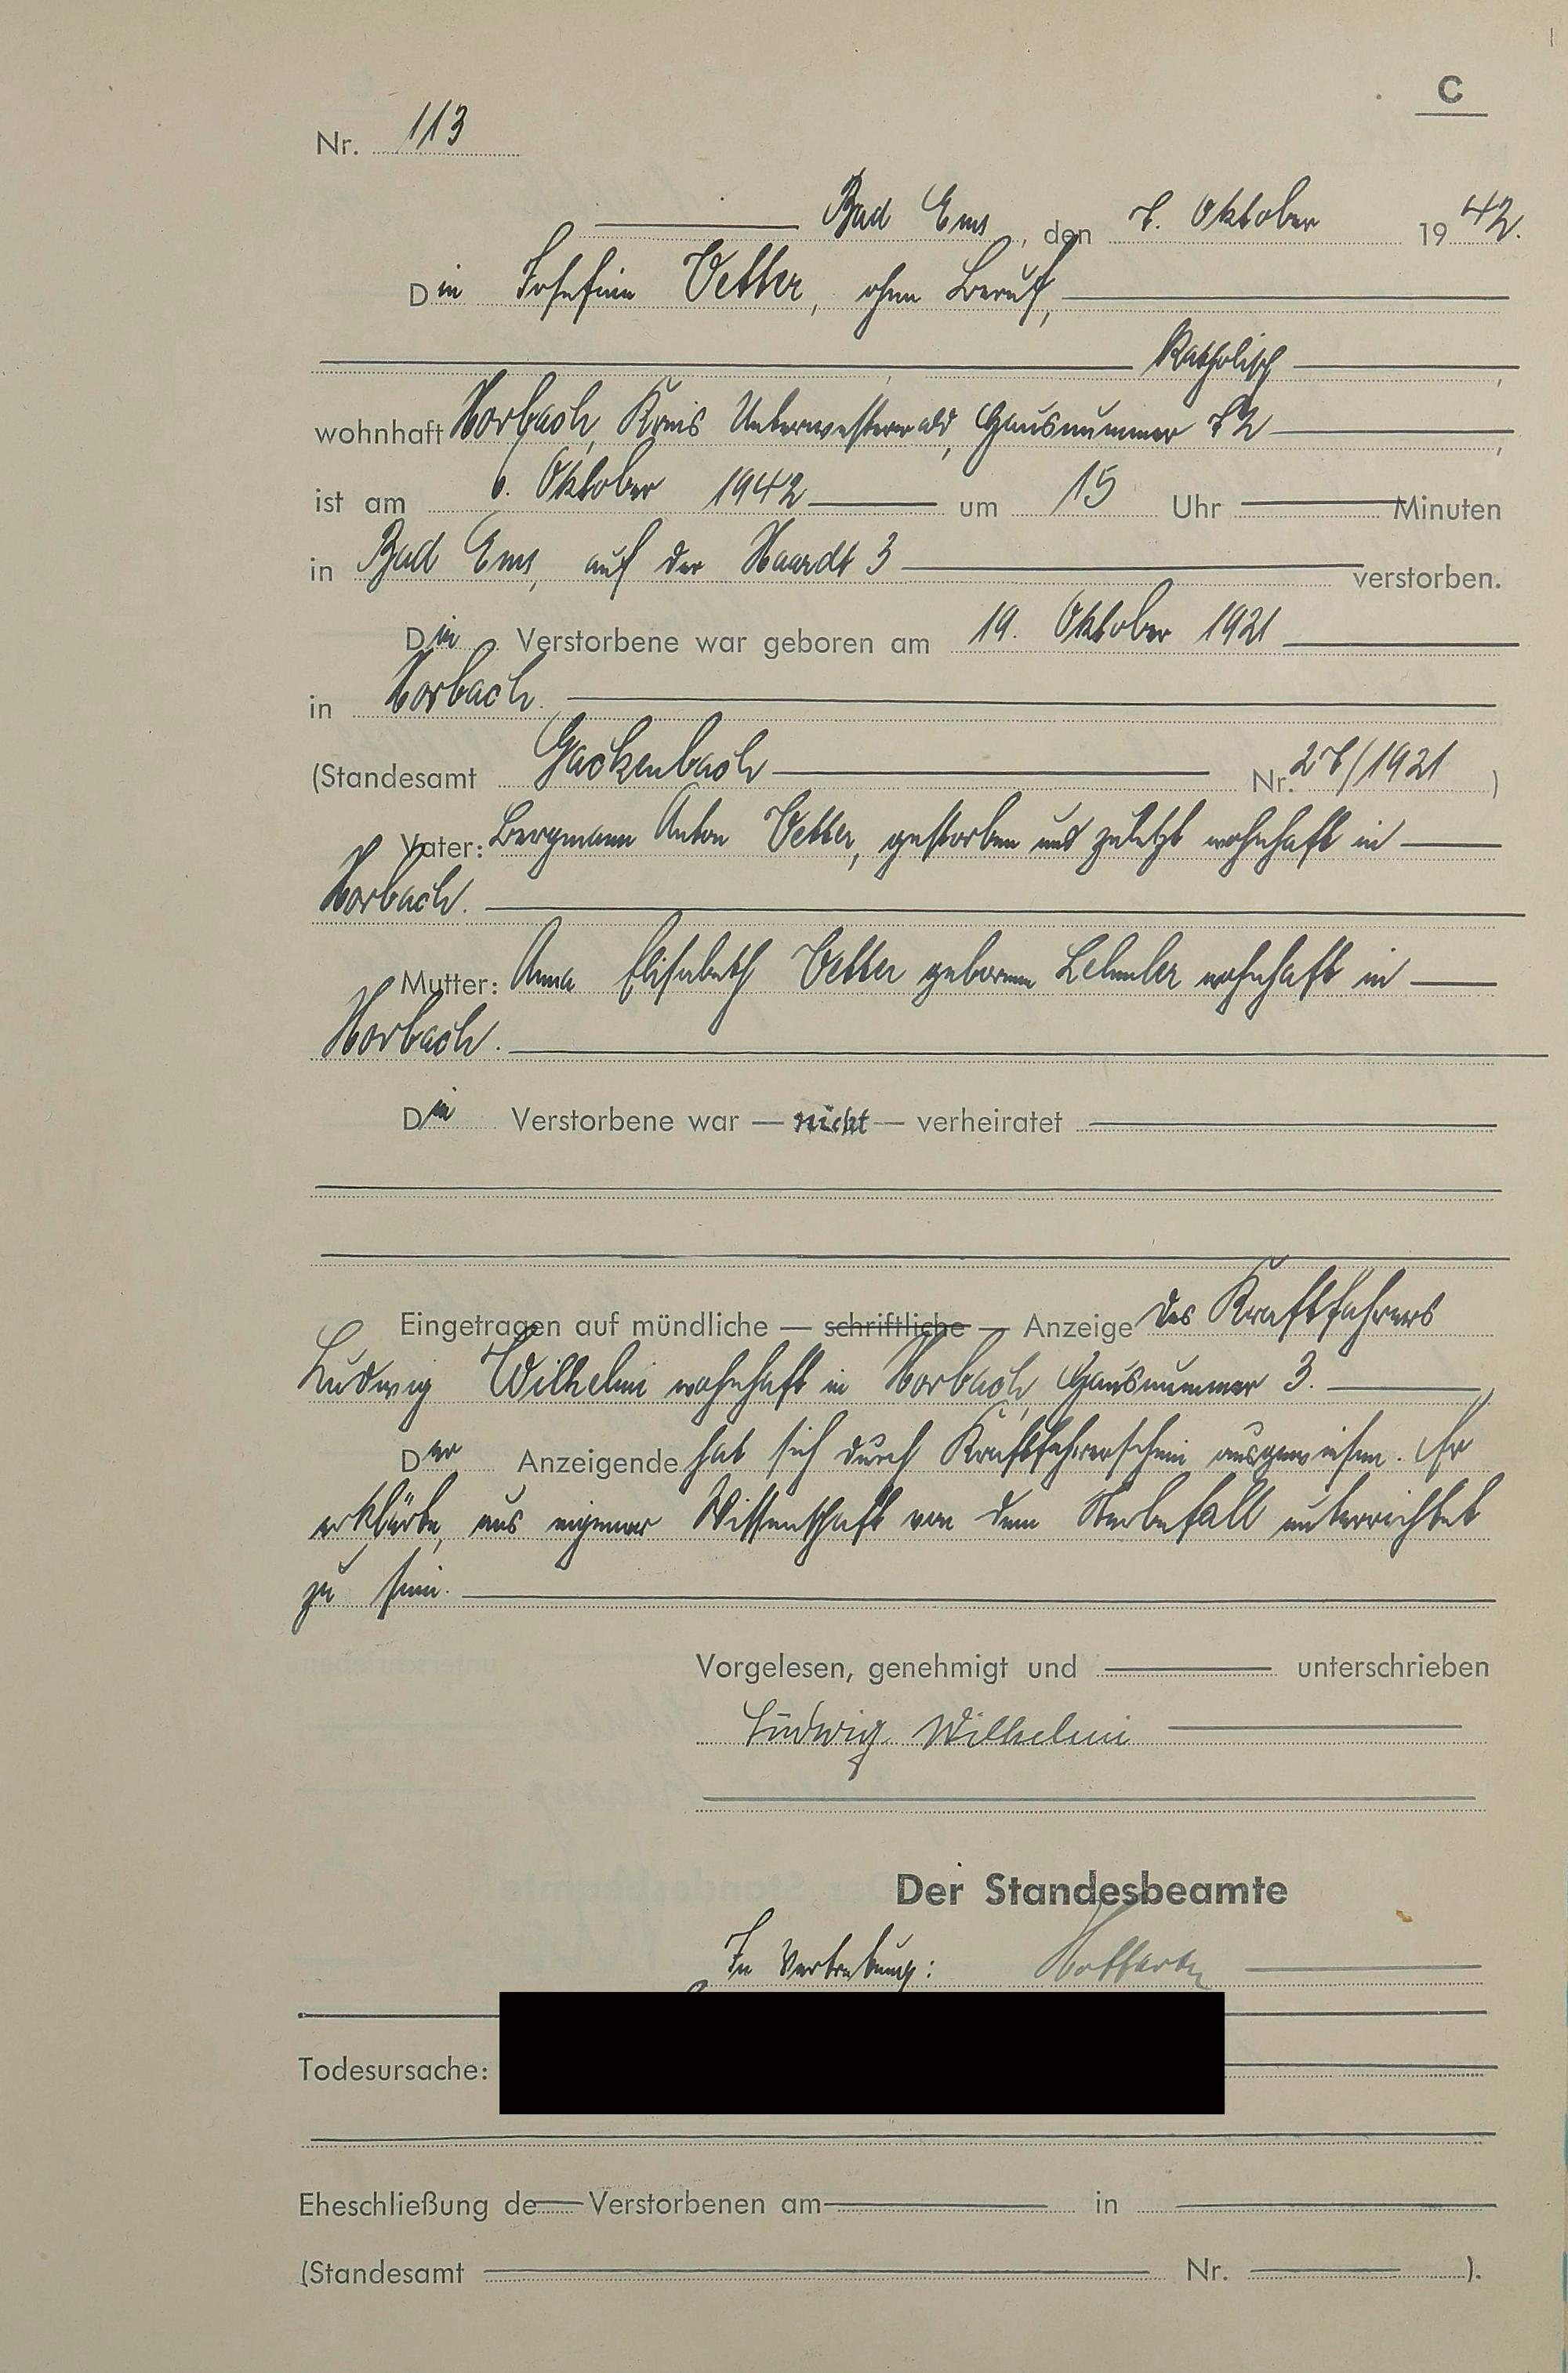 C
Nr. 113
Bad Ems, den 7. Oktober 1942.
Die Josefine Vetter, ohne Beruf,
katholisch
wohnhaft Horbach, Kreis Unterwesterwald, Hausnummer 72
ist am 6. Oktober 1942 um 15 Uhr Minuten
in Bad Ems, auf der Haardt 3 verstorben.
Die Verstorbene war geboren am 19. Oktober 1921
in Horbach.
(Standesamt Gackenbach Nr. 27/1921 )
Vater: Bergmann Anton Vetter, gestorben und zuletzt wohnhaft in
Horbach.
Mutter: Anna Elisabeth Vetter geborene wohnhaft in
Horbach.
Die Verstorbene war — nicht — verheiratet
Eingetragen auf mündliche — schriftliche — Anzeige des Kraftfahrers
Ludwig Wilhelmi wohnhaft in Horbach, Hausnummer 3.
Der Anzeigende hat sich durch Kraftfahrerschein ausgewiesen. Er
erklärte, aus eigener Wissenschaft von dem Sterbefall unterrichtet
zu sein.
Vorgelesen, genehmigt und unterschrieben
Ludwig Wilhelmi
Der Standesbeamte
In Vertretung:
Todesursache:
Eheschließung de Verstorbenen am in
(Standesamt Nr. ).